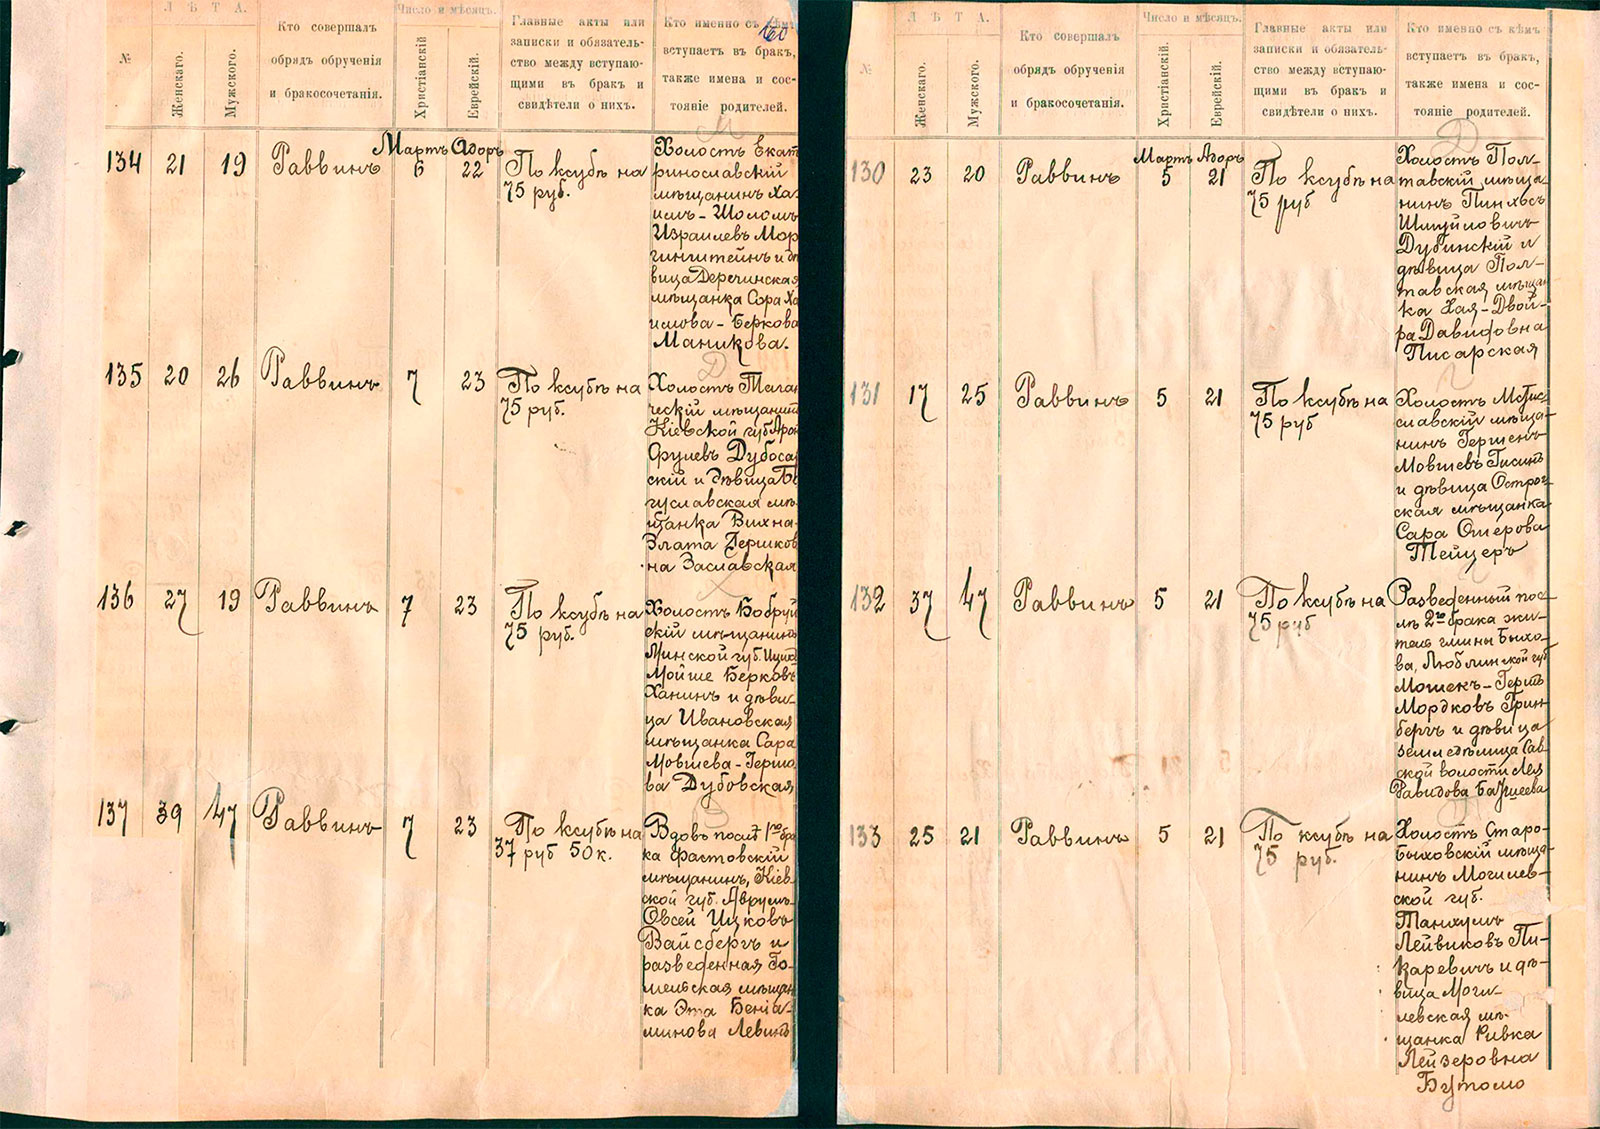 Л Ѣ Т А.
Число и мѣсяцъ.
№
Женскаго.
Мужского.
Кто совершалъ
обрядъ обрученія
и бракосочетанія.
Христіанскій
Еврейскій.
Главные акты или
записки и обязатель-
ство между вступаю-
щими въ бракъ и
свидѣтели о нихъ.
Кто именно съ кѣмъ
вступаетъ въ бракъ,
также имена и сос-
тояніе родителей.
60
М
Мартъ Адоръ
134 21 19 Раввинъ 6 22
По ксубѣ на
75 руб.
Холостъ Екат
ринославскій
мѣщанинъ Ха-
имъ-Шоломъ
Израилевъ Мор
гинштейнъ и дѣ
вица Деречинская
мѣщанка Сора Ха
имова-Беркова
Маникова.
Д
135 20 26 Раввинъ 7 23
По ксубѣ на
75 руб.
Холостъ Таган
ческій мѣщанинъ
Кіевской губ. Арон
Фулевъ Дубоса
скій и дѣвица Бо
гуславская мѣ
щанка Вихна-
Злата Гершков
на Заславская
Х
136 27 19 Раввинъ 7 23
По ксубѣ на
75 руб.
Холостъ Бобруй
скій мѣщанинъ
Минской губ. Ицко
Мойше Берковъ
Ханинъ и дѣви-
ца Ивановская
мѣщанка Сара
Мовшева-Гершо
ва Дубовская
В
137 39 47 Раввинъ 7 23
По ксубѣ на
37 руб 50 к.
Вдовъ послѣ 1го бра
ка Фастовскій
мѣщанинъ, Кіев
ской губ. Аврумъ-
Овсей Ицковъ
Вайсбергъ и
разведенная Го-
мельская мѣщан
ка Эта Беніа-
минова Левинъ
Л Ѣ Т А.
Число и мѣсяцъ.
№
Женскаго.
Мужского.
Кто совершалъ
обрядъ обрученія
и бракосочетанія.
Христіанскій
Еврейскій.
Главные акты или
записки и обязатель-
ство между вступаю-
щими въ бракъ и
свидѣтели о нихъ.
Кто именно съ кѣмъ
вступаетъ въ бракъ,
также имена и сос-
тояніе родителей.
Д
Мартъ Адоръ
130 23 20 Раввинъ 5 21
По ксубѣ на
75 руб
Холостъ Пол-
тавскій мѣща-
нинъ Пинхосъ
Шмуйловичъ
Дубинскій и
дѣвица Пол-
тавская мѣщан
ка Хая-Двой-
ра Давидовна
Писарская
131 17 25 Раввинъ 5 21
По ксубѣ на
75 руб
Холостъ Мстис-
славскій мѣща-
нинъ Гершенъ
Мовшевъ Гисинъ
и дѣвица Острог
ская мѣщанка
Сара Ошерова
Тейцеръ
132 37 47 Раввинъ 5 21
По ксубѣ на
75 руб
Разведенный пос-
лѣ 2го брака жи-
тель гмины Быхо-
ва, Люблинской губ
Мошек-Гершъ
Мордковъ Грин-
бергъ и дѣвица
земледѣлица Сав
ской волости Лея
Давидова
133 25 21 Раввинъ 5 21
По ксубѣ на
75 руб.
Холостъ Старо-
Быховскій мѣща-
нинъ Могилев-
ской губ.
Танхумъ
Лейвиковъ Пи-
каревичъ и дѣ-
вица Моги-
левская мѣ-
щанка Ривка
Лейзеровна
Бутомо